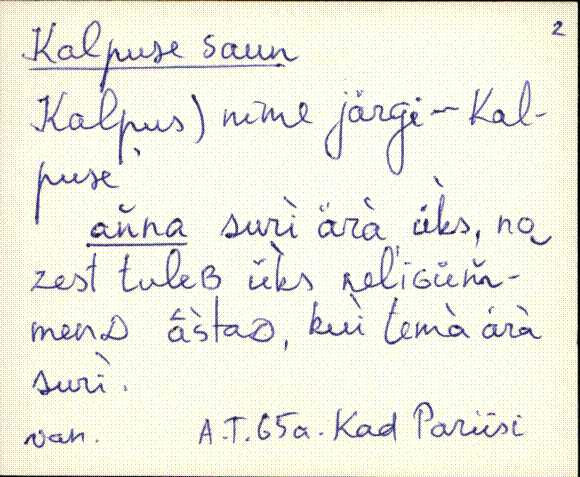 2
Kalpuse saun
Kalpus) nime järgi – Kal-
puse
aňna suri ̀ärà üks, no
zest tuleʙ ǜks neli-
menᴅ âstaᴅ, kuì temà ärà
surì.
van. A.T. 65a. Kad Pariisi